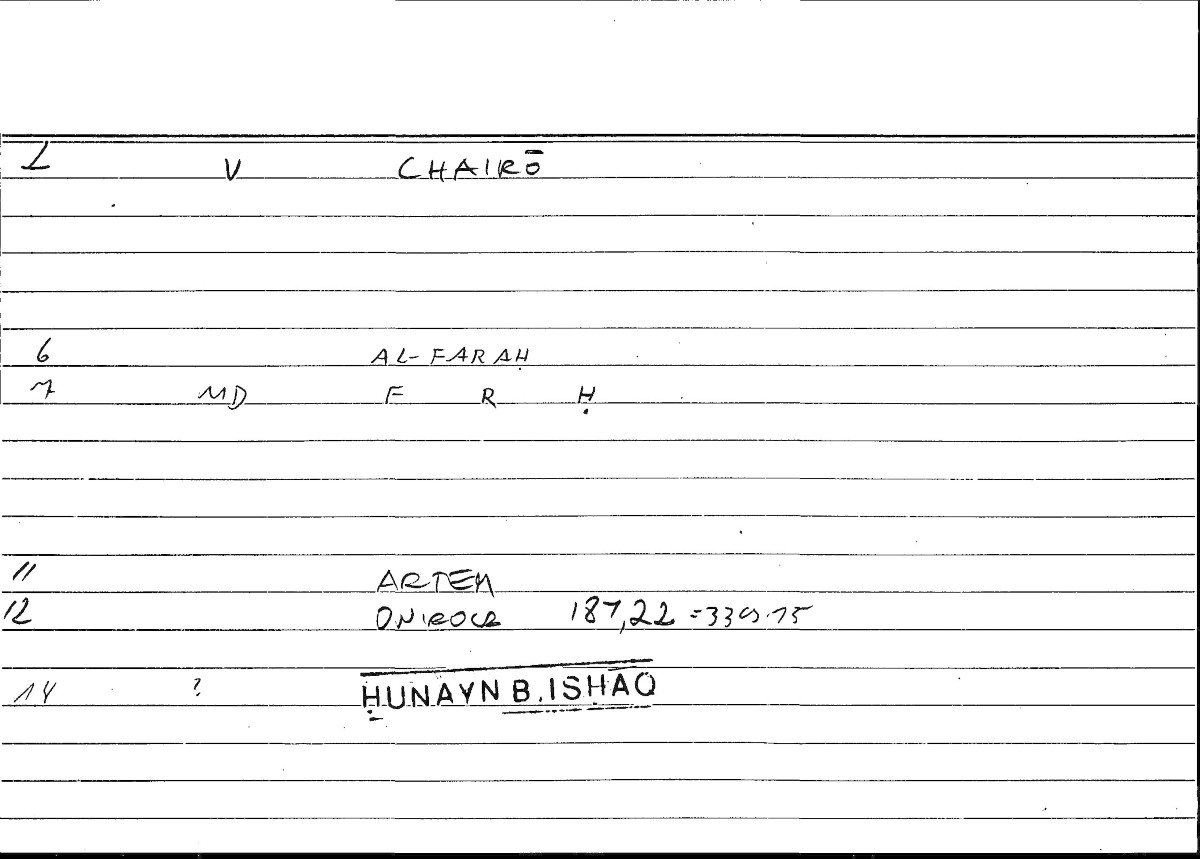 1 V CHAIRŌ
6 AL-FARAḤ
7 MD F R Ḥ
11 ARTEM
12 ONIROCR 187,22 = 339.15
14 ? ḤUNAYN B. ISḤĀQ